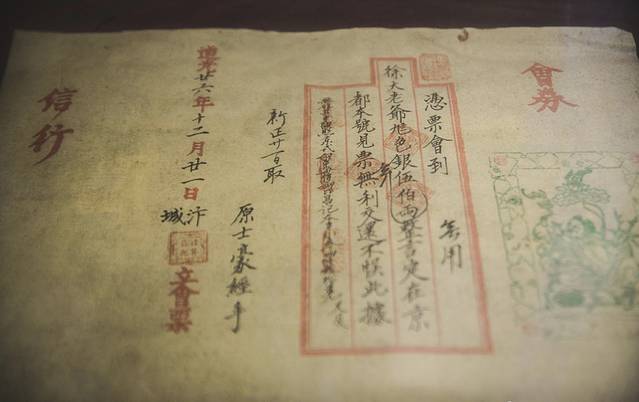 會券
憑票會到
無用
徐大老爺旭色銀伍佰兩整言定在京
都本號見票無利交還不悮此據
新正廿一日取
原士豪經手
道光廿六年十二月廿一日
汴城
立會票
信行